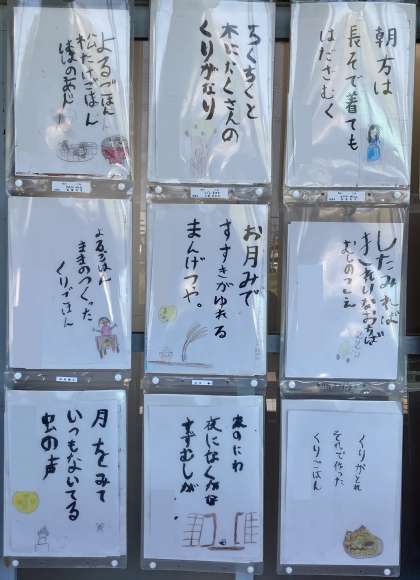 朝方は
長そで着ても
はださむく
ちくちくと
木にたくさんの
くりがなり
よるごはん
松たけごはん
したみれば
きれいなおちば
むしのこえ
お月みで
すすきがゆれる
まんげつや。
よるごはん
ままのつくった
くりごはん
くりがとれ
それで作った
くりごはん
のにわ
夜になく
すずむしが
月をみて
いつもないてる
虫の声